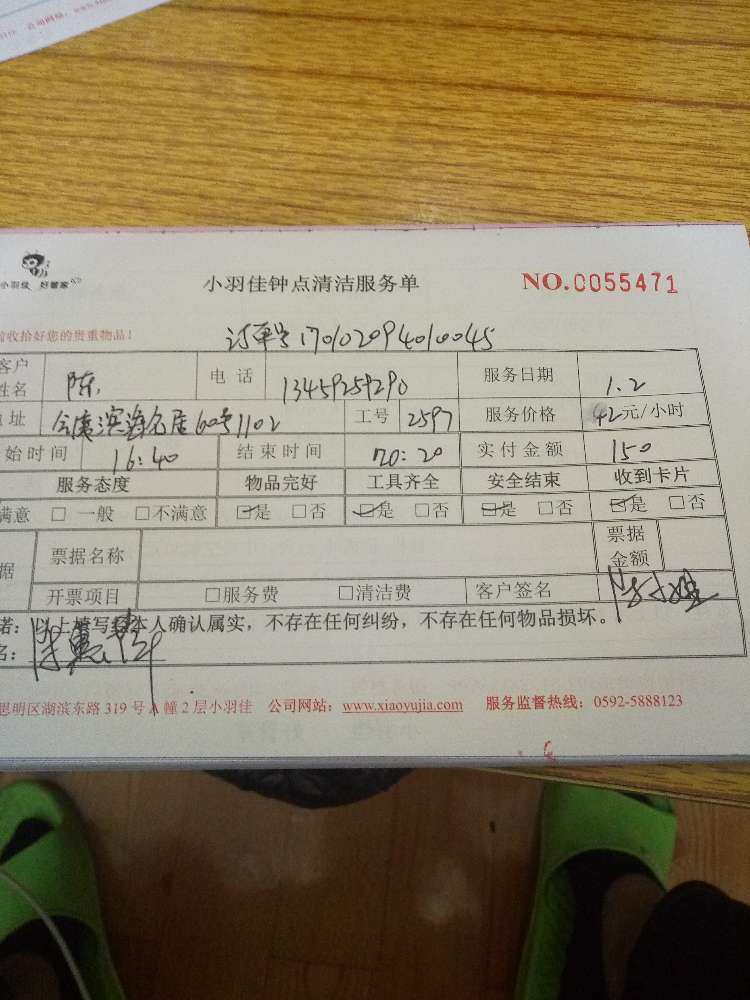 小羽佳 好管家
小羽佳钟点清洁服务单
NO.0055471
前收拾好您的贵重物品!
订单号170102094010045
客户姓名 陈 电话 13459259290 服务日期 1.2
地址 滨海名居60号1102 工号 2597 服务价格 42元/小时
始时间 16:40 结束时间 20:20 实付金额 150
服务态度 物品完好 工具齐全 安全结束 收到卡片
满意 □ 一般 □不满意 ☑是 □否 ☑是 □否 ☑是 □否 ☑是 □否
据 票据名称 票据金额
开票项目 □服务费 □清洁费 客户签名
诺: 以上填写经本人确认属实,不存在任何纠纷,不存在任何物品损坏。
名:
思明区湖滨东路 319 号 A 幢 2 层小羽佳 公司网站: www.xiaoyujia.com 服务监督热线: 0592-5888123